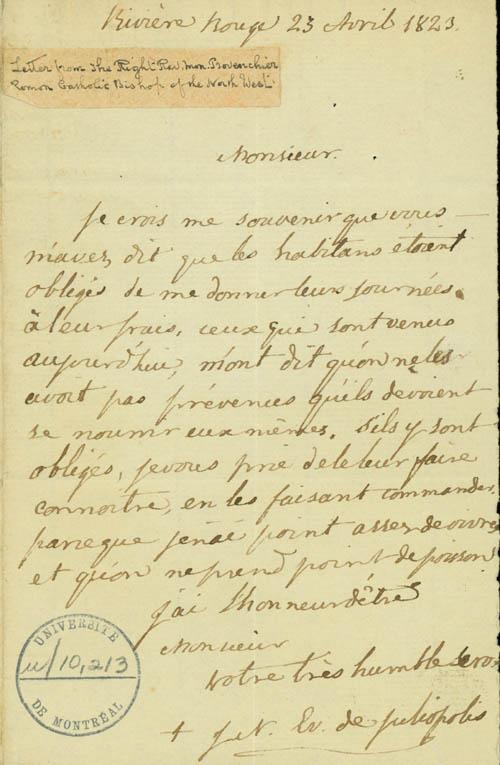 Rivière Rouge 23 Avril 1823.
Letter from the Right Rev. Mon. Provenchier
Roman Catholic Bishop of the North West
Monsieur.
Je crois me souvenir que vous
m'avez dit que les habitans étoient
obligés de me donner leurs journées
à leur frais, ceux qui sont venus
aujourd'hui, m'ont dit qu'on ne les
avoit pas prévenus qu'ils devoient
se nourrir eux mêmes. S'ils y sont
obligés, je vous prie de le leur faire
connoitre, en les faisant commander,
parceque je n'ai point assez de vivres
et qu'on ne prend point de poisson
J'ai l'honneur d'être
Monsieur
Votre très humble serv
+ J. N. Ev. de Juliopolis
UNIVERSITÉ
u/10,213
DE MONTRÉAL